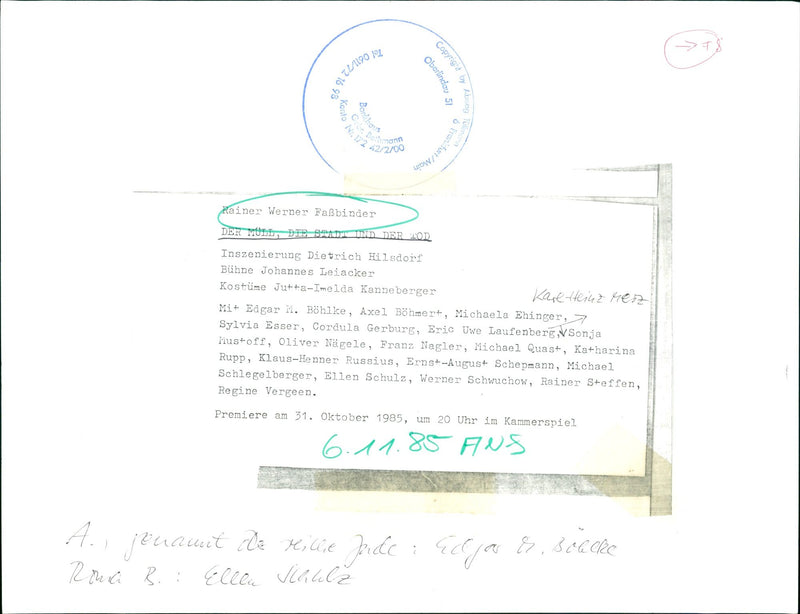 → TS
Copyright by
Oberlindau 51
6 Frankfurt/Main
Tel 0611/72 16 98
Bankhaus
Gebr. Bethmann
Konto Nr.
42/2/00
Rainer Werner Faßbinder
DER MÜLL, DIE STADT UND DER TOD
Inszenierung Dietrich Hilsdorf
Bühne Johannes Leiacker
Kostüme Jutta-Imelda Kanneberger
Karl-Heinz Merz
Mit Edgar M. Böhlke, Axel Böhmert, Michaela Ehinger,
Sylvia Esser, Cordula Gerburg, Eric Uwe Laufenberg, Sonja
Mustoff, Oliver Nägele, Franz Nagler, Michael Quast, Katharina
Rupp, Klaus-Henner Russius, Ernst-August Schepmann, Michael
Schlegelberger, Ellen Schulz, Werner Schwuchow, Rainer Steffen,
Regine Vergeen.
Premiere am 31. Oktober 1985, um 20 Uhr im Kammerspiel
6.11.85 ANS
A., genannt der reiche Jude: Edgar M. Böhlke
Roma B.: Ellen Schulz